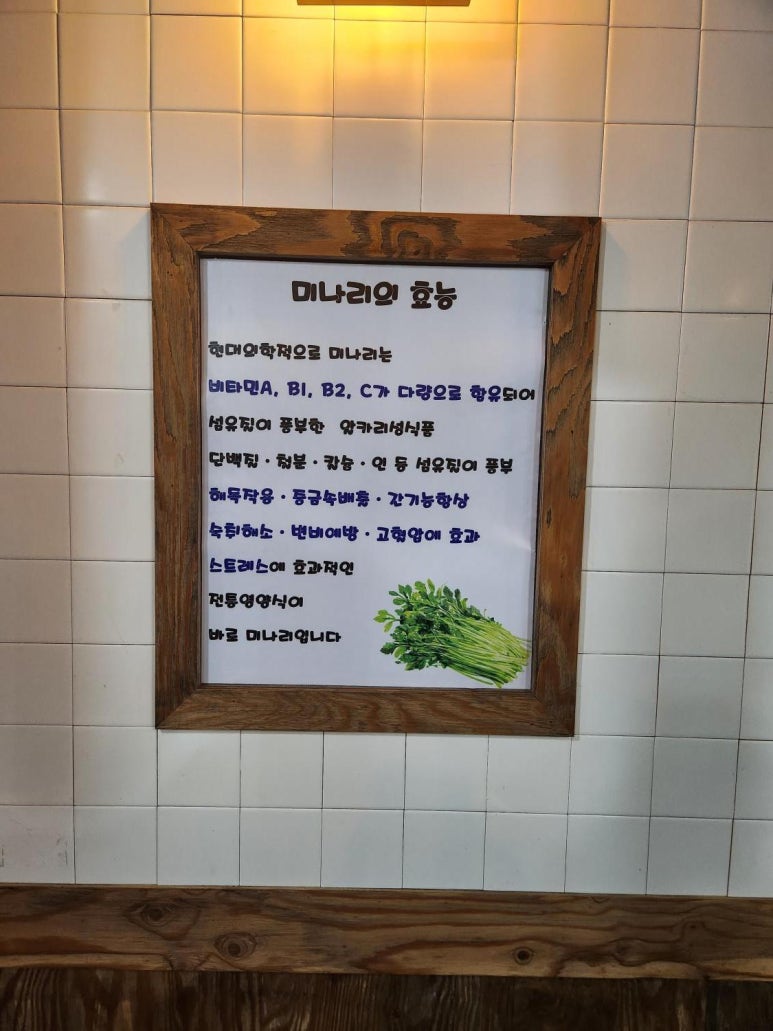 미나리의 효능
현대의학적으로 미나리는
비타민A, B1, B2, C가 다량으로 함유되어
섬유질이 풍부한 알카리성식품
단백질·철분·칼슘·인 등 섬유질이 풍부
해독작용·중금속배출·간기능향상
숙취해소·변비예방·고혈압에 효과
스트레스에 효과적인
전통영양식이
바로 미나리입니다